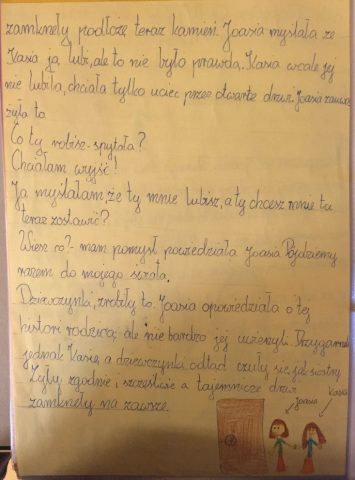 zamknęły podłożę teraz kamień. Joasia myslała że
Kasia ją lubi, ale to nie było prawdą. Kasia wcale jej
nie lubiła, chciała tylko uciec przez otwarte drzwi. Joasia zauwa
żyła to
Co ty robisz - spytała?
Chciałam wyjść!
Ja myślałam, że ty mnie lubisz, a ty chcesz mnie tu
teraz zostawić?
Wiesz co? - mam pomysł powiedziała Joasia Pójdziemy
razem do mojego świata.
Dziewczynki, zrobiły to. Joasia opowiedziała o tej
histori rodzicą, ale nie bardzo jej uwierzyli. Przygarneli
jednak Kasię, a dziewczynki odtąd czuły się jak siostry
Żyły zgodnie i szczęśliwie a tajemnicze drzwi
zamknęły na zawsze.
Joasia
Kasia